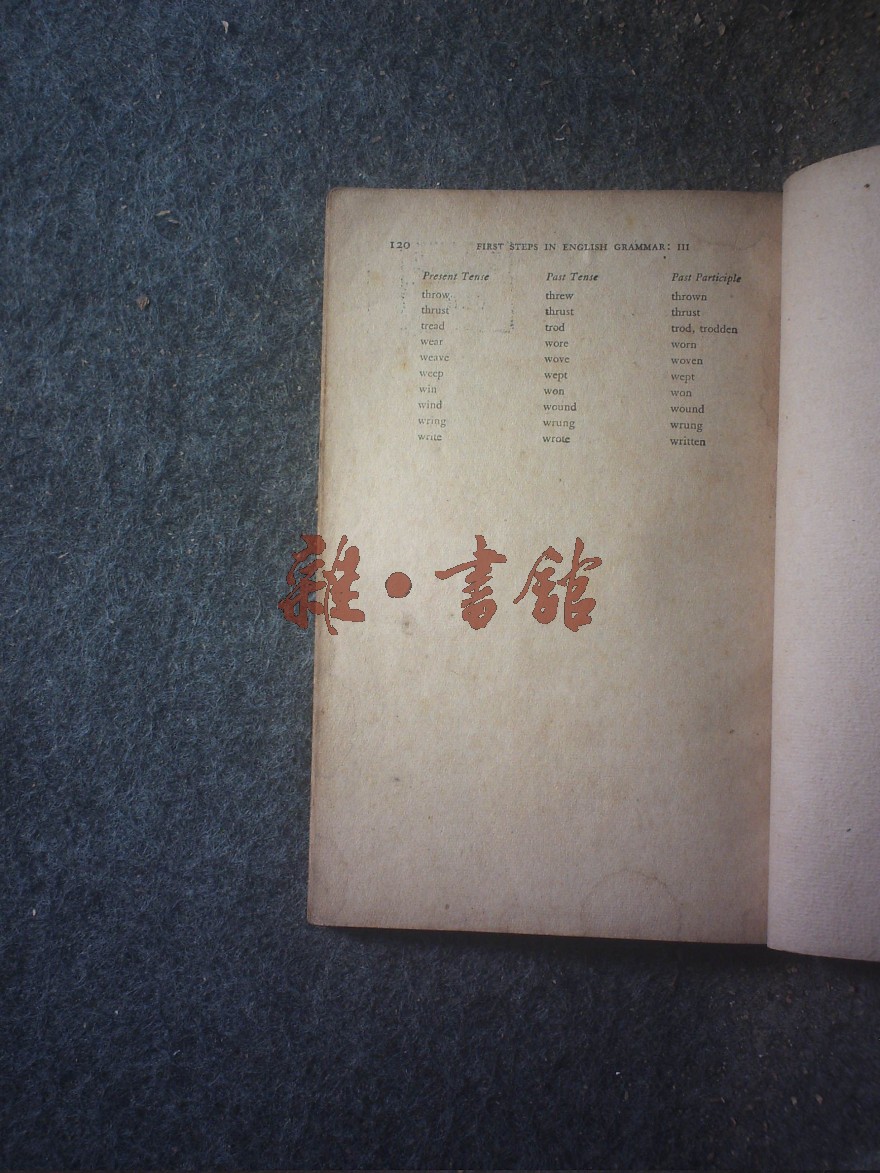 120 FIRST STEPS IN ENGLISH GRAMMAR: III
Present Tense Past Tense Past Participle
throw threw thrown
thrust thrust thrust
tread trod trod, trodden
wear wore worn
weave wove woven
weep wept wept
win won won
wind wound wound
wring wrung wrung
write wrote written
雜·書館